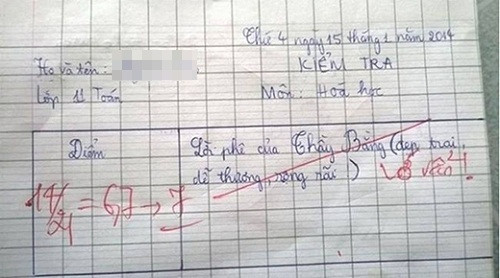 Thứ 4 ngày 15 tháng 1 năm 2014
KIỂM TRA
Họ và tên:
Lớp 11 Toán
Môn: Hoá học
Điểm
Lời phê của Thầy Bằng (đẹp trai,
dễ thương, phóng
14/21 = 6,7 → 7